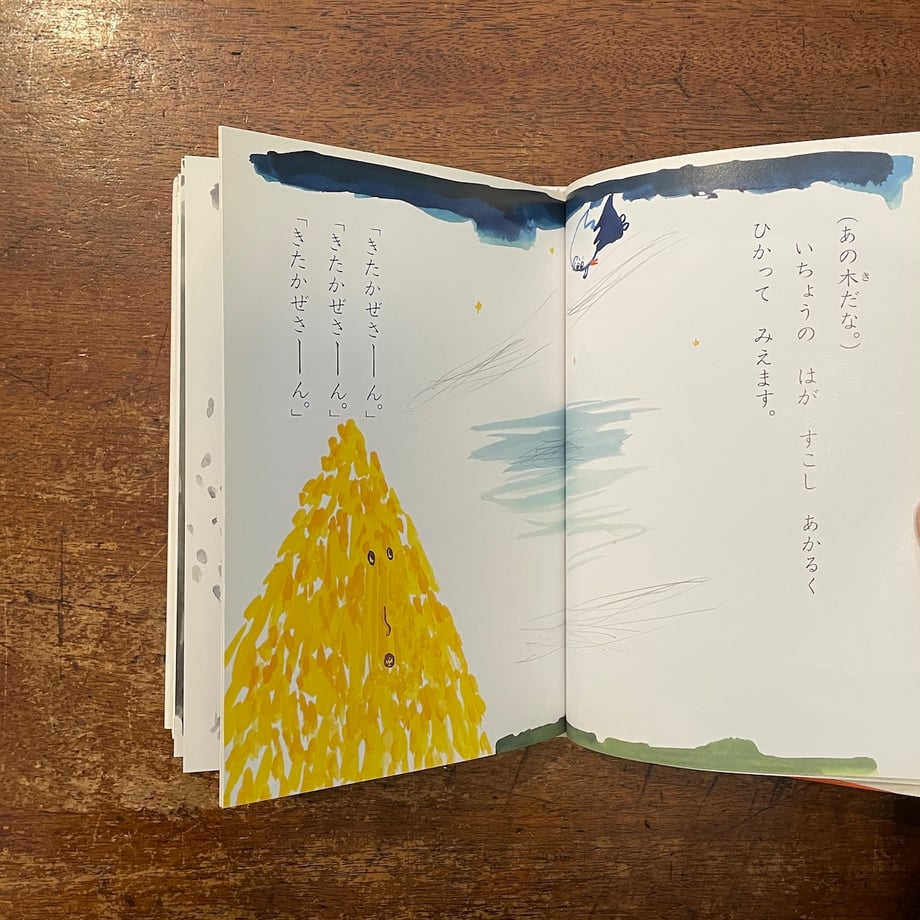 (あの木だな。)
き
いちょうの はが すこし あかるく
ひかって みえます。
「きたかぜさーーん。」
「きたかぜさーーん。」
「きたかぜさーーん。」